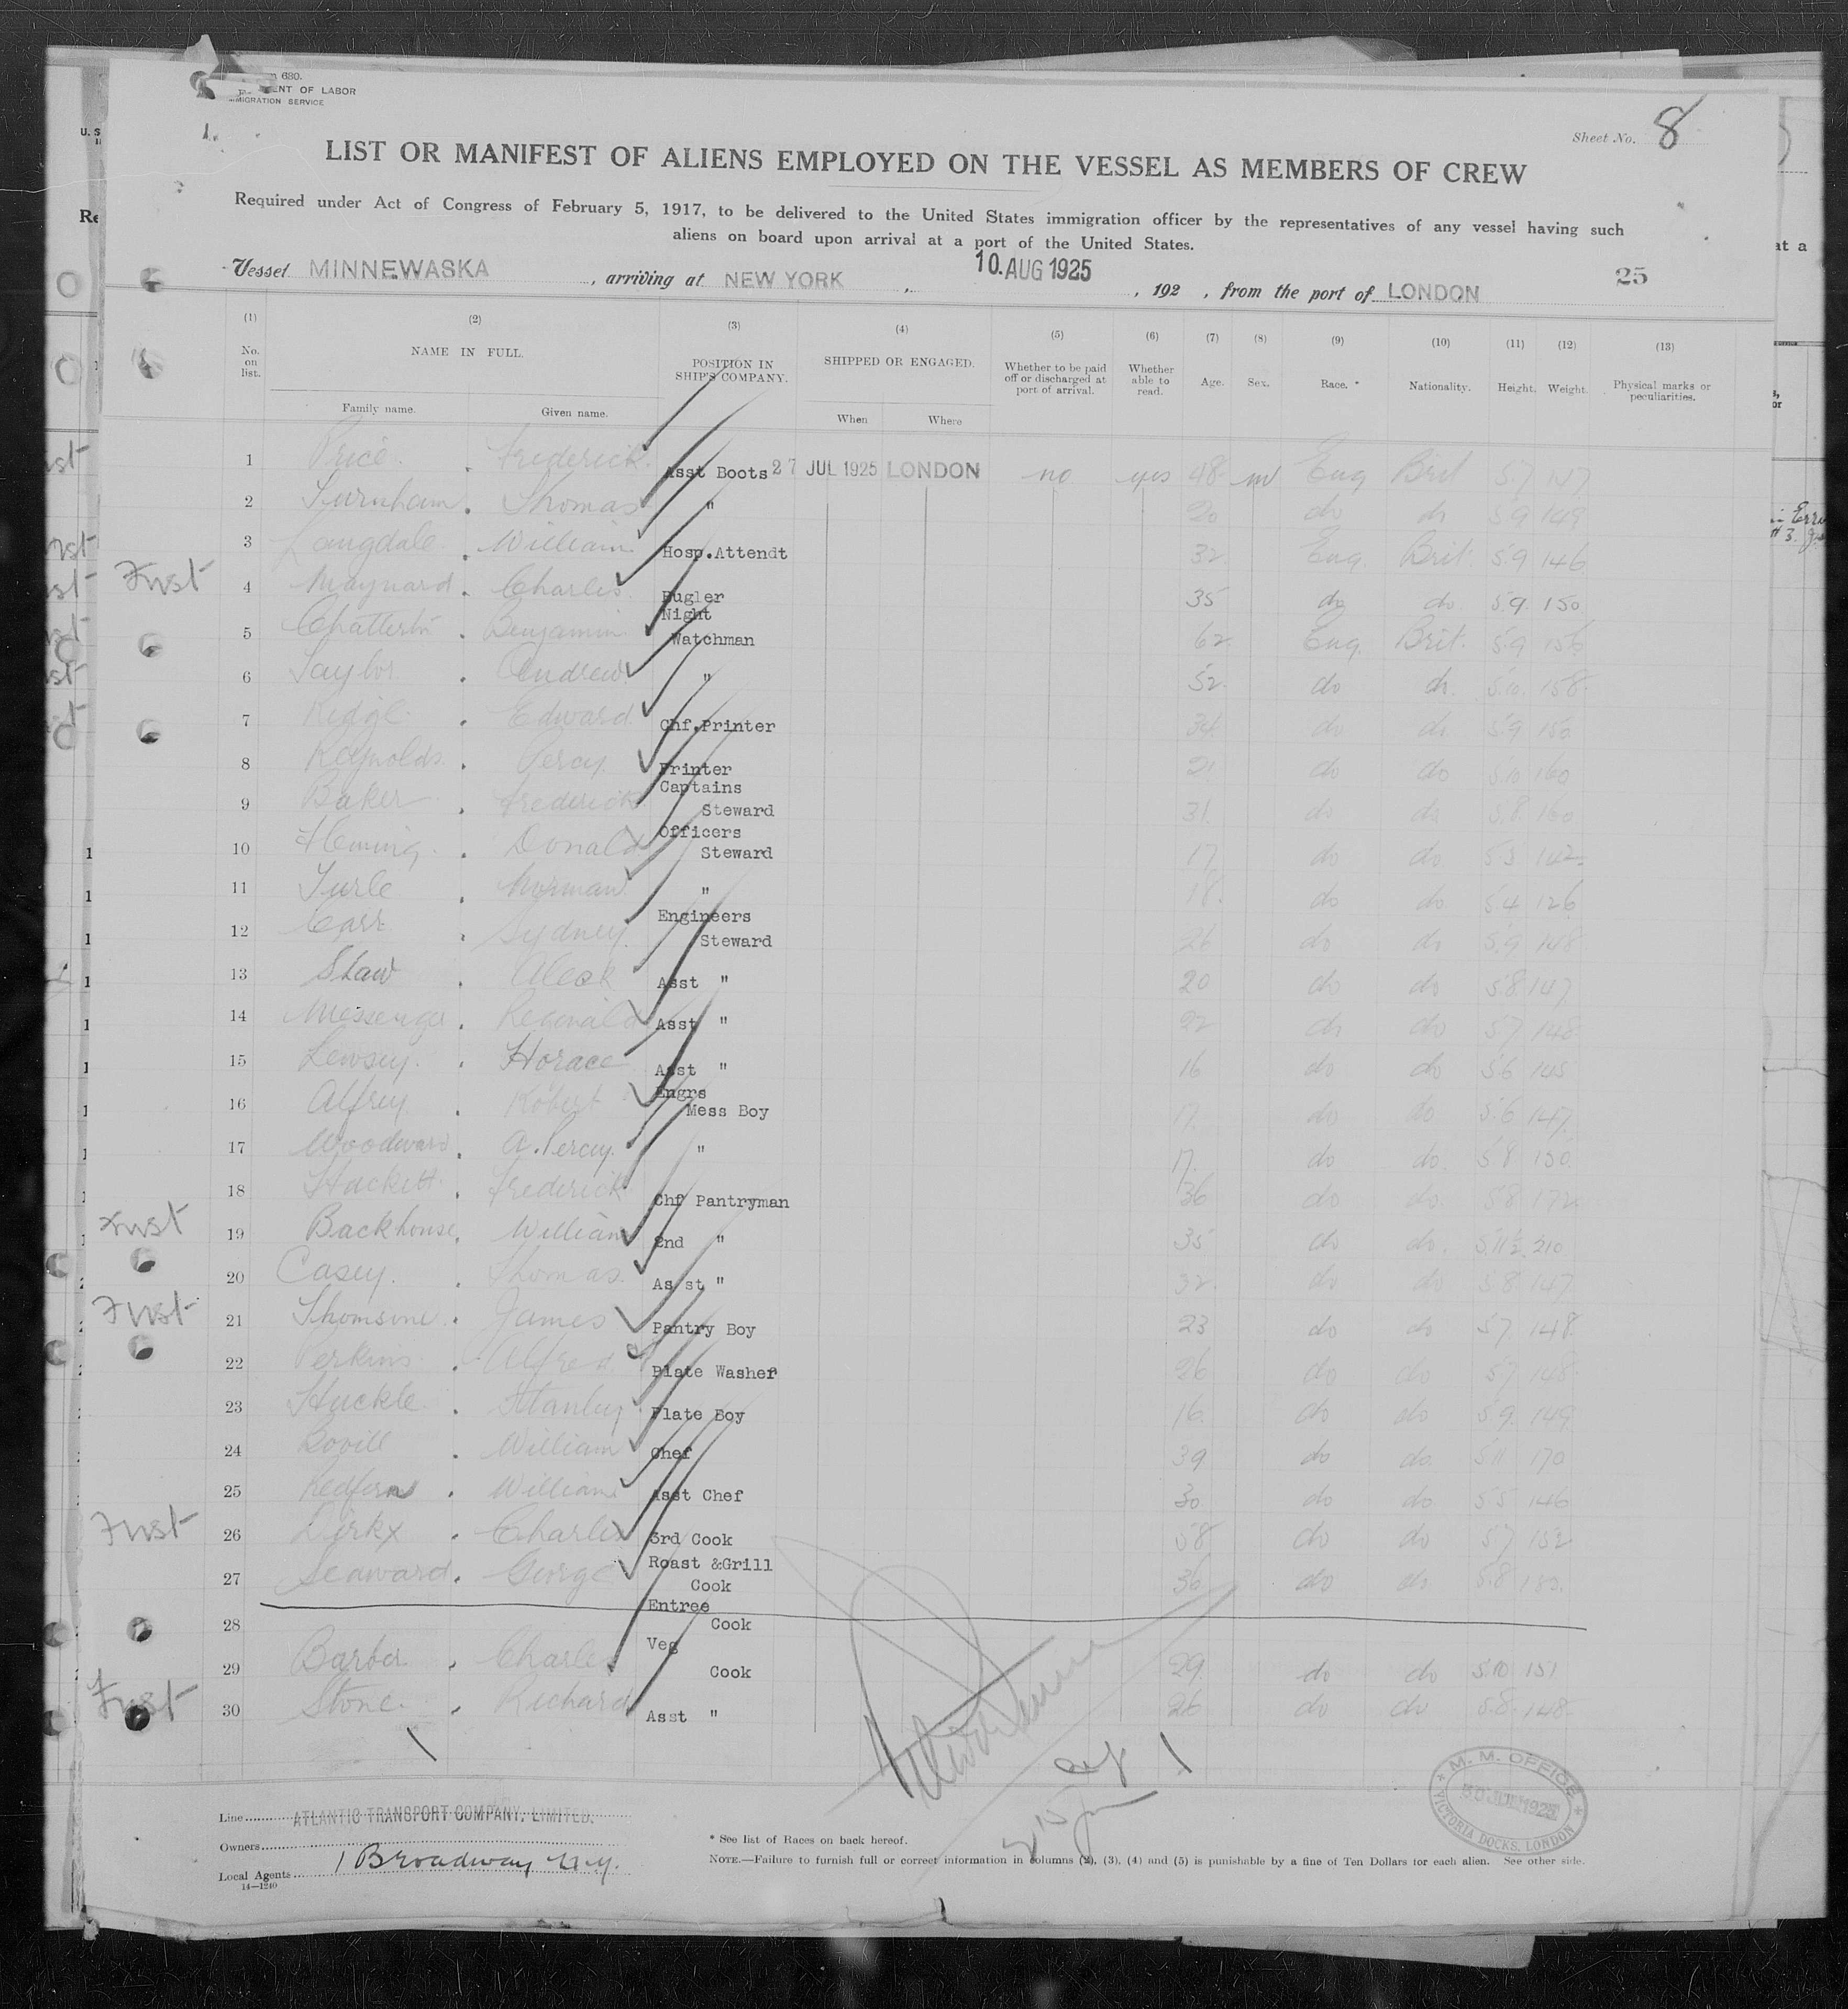 680.
ENT OF LABOR
MIGRATION SERVICE
Sheet No. 8
LIST OR MANIFEST OF ALIENS EMPLOYED ON THE VESSEL AS MEMBERS OF CREW
Required under Act of Congress of February 5, 1917, to be delivered to the United States immigration officer by the representatives of any vessel having such
aliens on board upon arrival at a port of the United States.
Vessel MINNEWASKA, arriving at NEW YORK, 10. AUG 1925, 192 , from the port of LONDON 25
(1) (2) (3) (4) (5) (6) (7) (8) (9) (10) (11) (12) (13)
No. on list. NAME IN FULL. POSITION IN SHIP'S COMPANY. SHIPPED OR ENGAGED. Whether to be paid off or discharged at port of arrival. Whether able to read. Age. Sex. Race. * Nationality. Height. Weight. Physical marks or peculiarities.
Family name. Given name. When Where
1 Price Frederick Asst Boots 27 JUL 1925 LONDON no yes 48 m Eng Brit 5.7 147
2 Turnham Thomas " 20 do do 5.9 149
3 Langdale William Hosp.Attendt 32 Eng. Brit. 5.9 146
First 4 Maynard Charles Bugler 35 do do 5.9. 150
5 Chatterton Benjamin Night Watchman 62 Eng. Brit. 5.9 156
6 Taylor Andrew " 52 do do 5.10. 158
7 Ridge Edward Chf.Printer 34 do do 5.9 150
8 Reynolds Percy Printer 21 do do 5.10 160
9 Baker Frederick Captains Steward 31 do do 5.8 160
10 Fleming Donald Officers Steward 17 do do 5.3 142
11 Turle Norman " 18. do do 5.4 126
12 Carr Sydney Engineers Steward 26 do do 5.9 148
13 Shaw Aleck Asst " 20 do do 5.8 147
14 Messenger Reginald Asst " 22 do do 5.7 148
15 Lewsey Horace Asst " 16 do do 5.6 145
16 Alfrey Robert Engrs Mess Boy 17 do do 5.6 147
17 Woodward A. Percy " 17. do do. 5.8 150
18 Hackett Frederick Chf Pantryman 36 do do 5.8 172
First 19 Backhouse William 2nd " 35 do do. 5.11½ 210
20 Casey Thomas Asst " 32. do do 5.8 147
First 21 Thomsone James Pantry Boy 23 do do 5.7 148
22 Perkins Alfred Plate Washer 26 do do 5.7 148
23 Huckle Stanley Plate Boy 16. do do 5.9. 149
24 Bovill William Chef 39 do do. 5.11 170
25 Redfern William Asst Chef 30 do do 5.5 146
First 26 Dirkx Charles 3rd Cook 58 do do 5.7 152
27 Seaward George Roast &Grill Cook 36 do do 5.8
28 Entree Cook
29 Barber Charles Veg Cook 29. do do 5.10 151
First 30 Stone Richard Asst " 26 do do 5.8. 148
M. M. OFFICE
30 JUL 1925
VICTORIA DOCKS, LONDON
Line ATLANTIC TRANSPORT COMPANY, LIMITED.
Owners
Local Agents 1 Broadway N.Y.
14—1240
* See list of Races on back hereof.
NOTE.—Failure to furnish full or correct information in columns (2), (3), (4) and (5) is punishable by a fine of Ten Dollars for each alien. See other side.